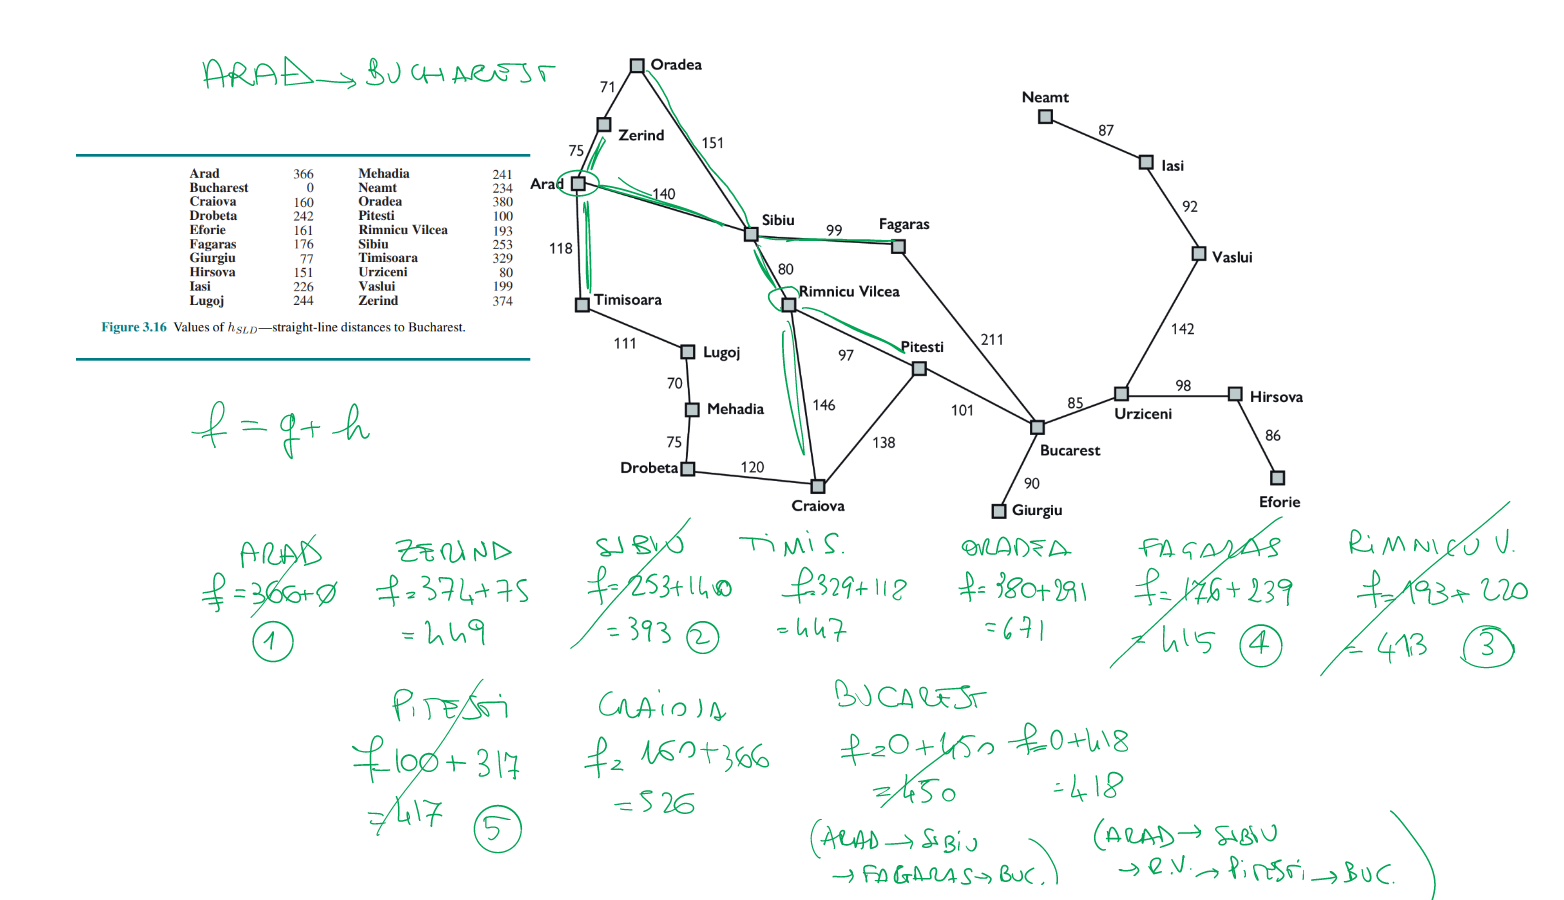 ARAD → BUCHAREST
Arad 366 Mehadia 241
Bucharest 0 Neamt 234
Craiova 160 Oradea 380
Drobeta 242 Pitesti 100
Eforie 161 Rimnicu Vilcea 193
Fagaras 176 Sibiu 253
Giurgiu 77 Timisoara 329
Hirsova 151 Urziceni 80
Iasi 226 Vaslui 199
Lugoj 244 Zerind 374
Figure 3.16 Values of hSLD—straight-line distances to Bucharest.
f = g + h
Oradea
71
Zerind
75
151
Arad
140
Sibiu
99
Fagaras
118
80
Timisoara
Rimnicu Vilcea
111
Lugoj
97
Pitesti
211
70
Mehadia
146
101
75
138
Drobeta
120
Craiova
Neamt
87
Iasi
92
Vaslui
142
85
98
Urziceni
Hirsova
Bucarest
86
90
Giurgiu
Eforie
ARAD
f = 366+0
1
ZERIND
f = 374+75
= 449
SIBIU
f = 253+140
= 393 2
TIMIS.
f = 329+118
= 447
ORADEA
f = 380+291
= 671
FAGARAS
f = 176+239
= 415 4
RIMNICU V.
f = 193+220
= 413 3
PITESTI
f = 100+317
= 417 5
CRAIOVA
f = 160+366
= 526
BUCAREST
f = 0+450 f = 0+418
= 450 = 418
(ARAD → SIBIU
→ FAGARAS → BUC.)
(ARAD → SIBIU
→ R.V. → PITESTI → BUC.)